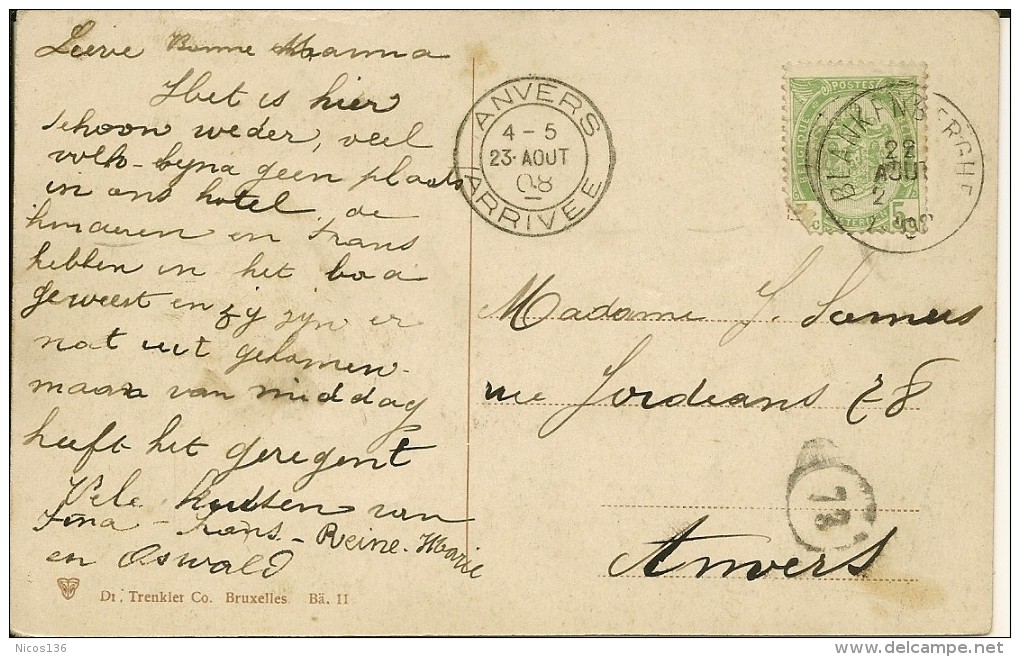 Lieve Bonne Mama
Het is hier
schoon weder, veel
volk - byna geen plaats
in ons hotel, de
kinderen en Frans
hebben in het bad
geweest en zy zyn er
nat uit gekomen -
maar van middag
heeft het geregent
Vele kussen van
Fina - Frans - Reine-Marie
en Oswald
Dr. Trenkler Co. Bruxelles. Bä. 11
ANVERS
4 - 5
23·AOUT
08
ARRIVÉE
POSTES
5
BLANKENBERGHE
22
AOUT
Madame J. Somers
rue Jordaens 28
Anvers
78
Nicos136
delcampe.net